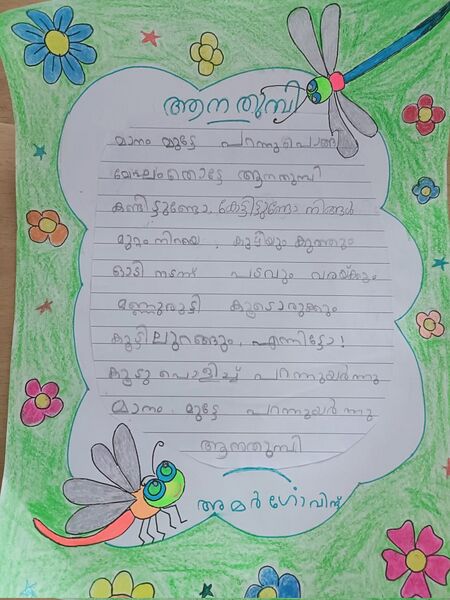 ആന തുമ്പി
മാനം മുട്ടേ പറന്നുപൊങ്ങി
മേഘം തൊട്ടേ ആനതുമ്പി
കണ്ടിട്ടുണ്ടോ കേട്ടിട്ടുണ്ടോ നിങ്ങൾ
മുറ്റം നിറയെ, കുഴിയും കുത്തും
ഓടി നടന്ന് പടവും വരയ്ക്കും
മണ്ണുരുട്ടി കൂടൊരുക്കും
കൂട്ടിലുറങ്ങും, എന്നിട്ടോ!
കൂടു പൊളിച്ച് പറന്നുയർന്നു
മാനം മുട്ടേ പറന്നുയർന്നു
ആനതുമ്പി
അമർ ഗോവിന്ദ്